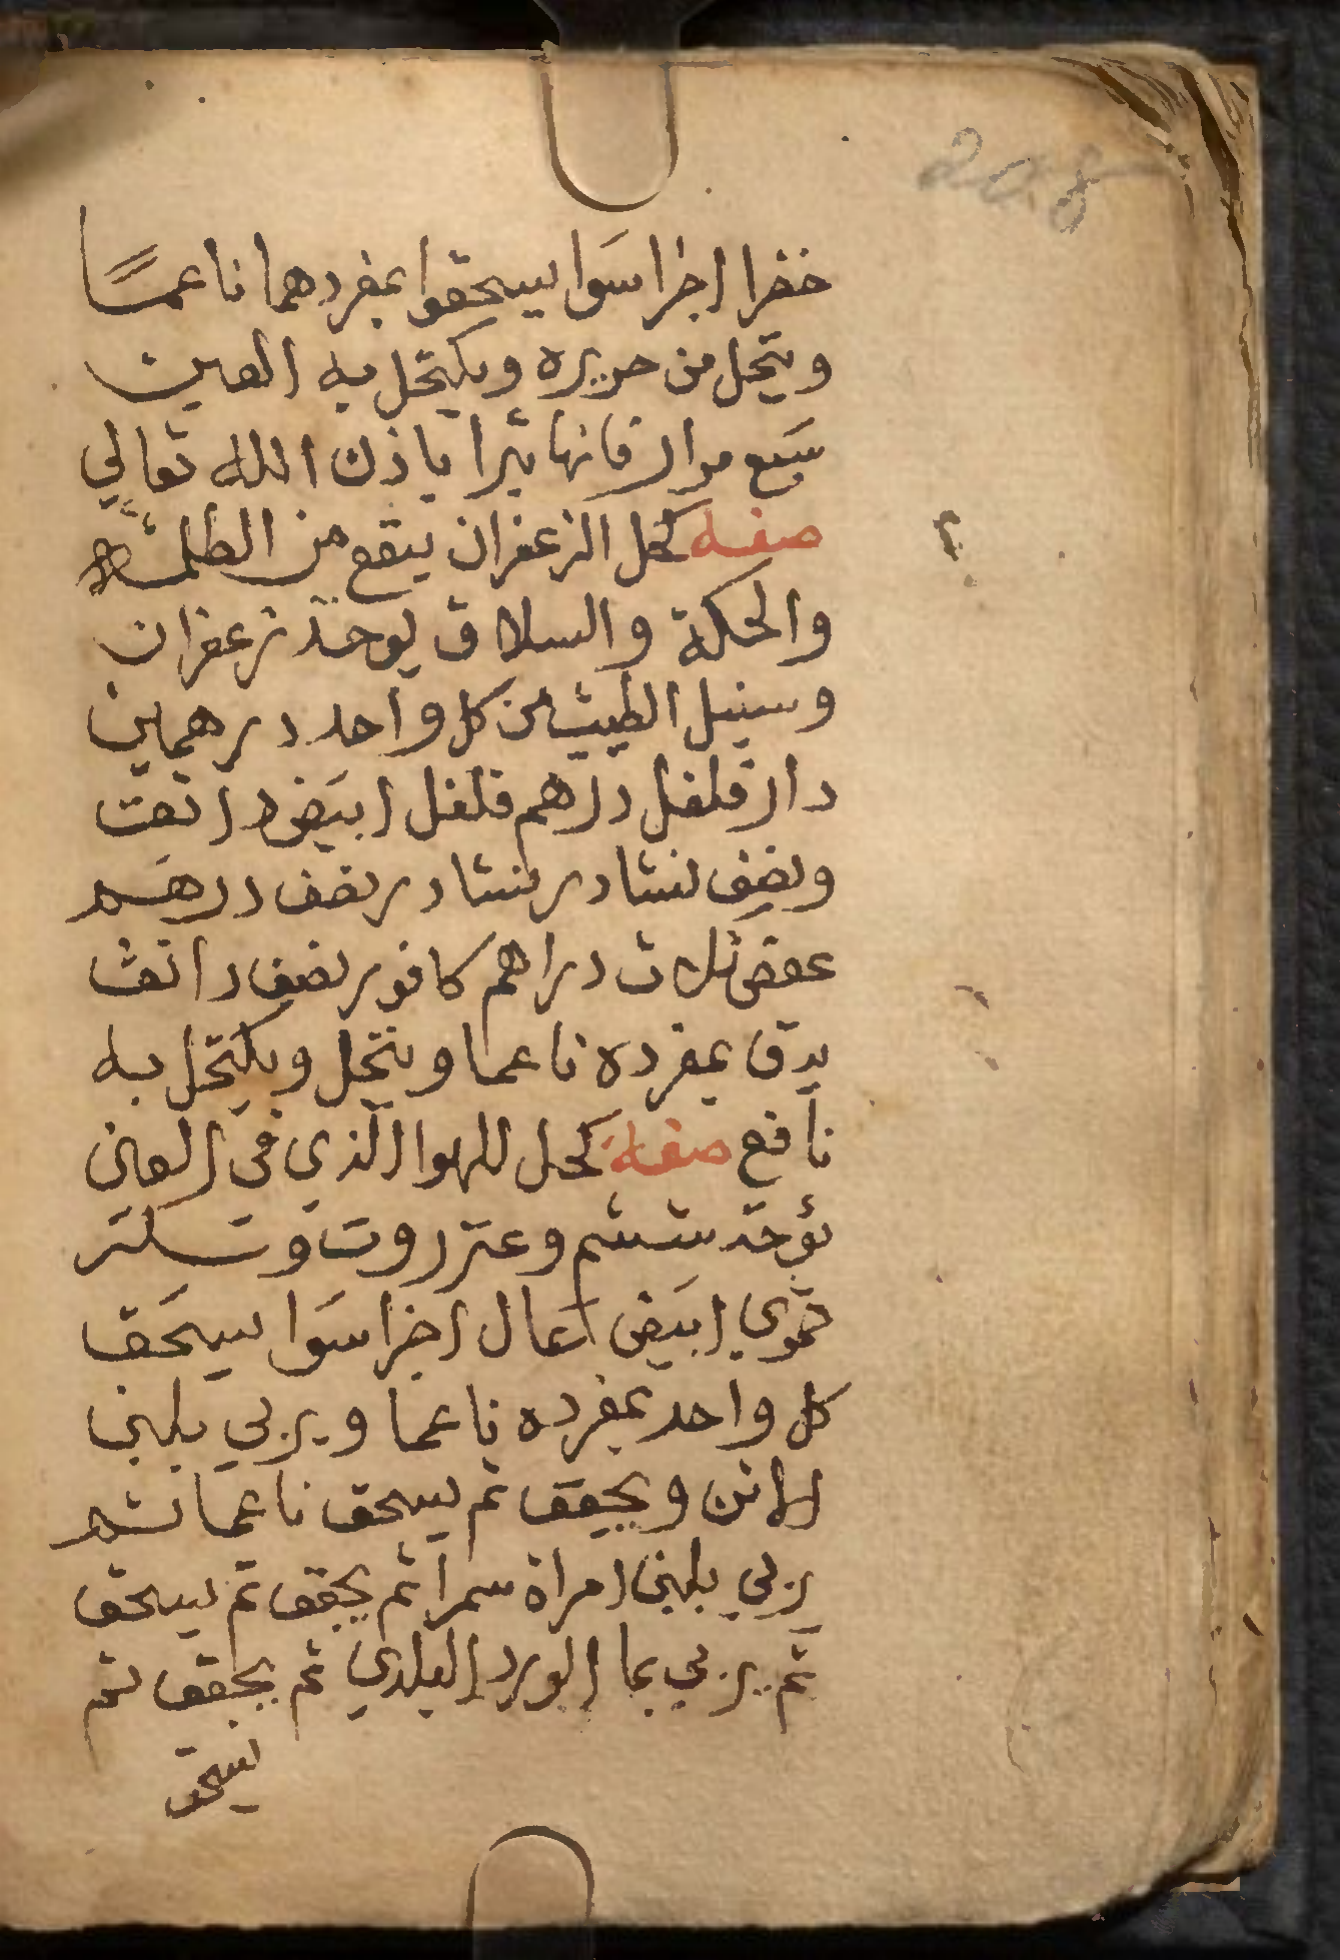 208
خضرا اجزا سَوا يسحقوا بمفردهما ناعمًا
وينخل من حريره ويكتحل به العين
سَبع مرار فانها تبرا باذن الله تعالي
صفة كحل الزعفران ينفع من الظلمة
والحكة والسلاق يوخذ زعفران
وسنبل الطيب من كل واحد درهمين
دار فلفل درهم فلفل ابيَض دانق
ونصف نشادر نشادر نصف درهم
عفص ثلاث دراهم كافور نصف دانق
يدق بمفرده ناعما وينخل ويكتحل به
نافع صفة كحل للهوا الذي في العين
يؤخذ ششم وعنزروت وسكر
حموي ابيَض اعمال اجزا سَوا يسحَق
كل واحد بمفرده ناعما ويربي بلبن
الاتن ويجفف ثم يسحق ناعما ثم
يربي بلبن امراة سمرا ثم يجفف ثم يسحق
ثم يربي بما الورد البلدي ثم يجفف ثم
يسحق